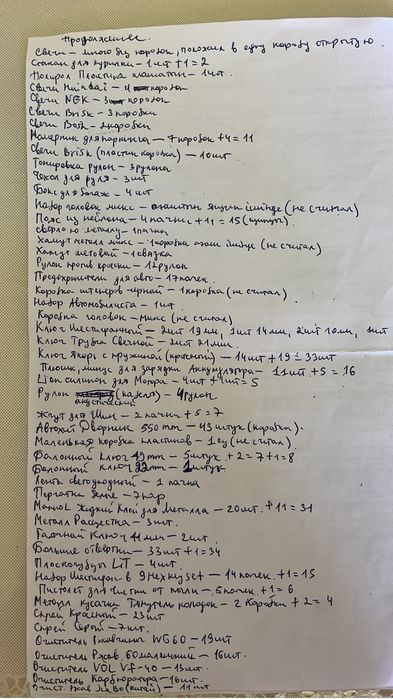 Продолжение.
Свечи - много без коробок, положил в одну коробу открытую.
Стакан для курилки - 1 шт + 1 = 2
Полирол Пластика - 1 шт.
Свечи Hundai - 4 коробок
Свечи NGK - 3 коробок
Свечи Brisk - 3 коробки
Свечи Bosh - коробки
Номерник для паркинга - 7 коробок + 4 = 11
Свечи Brisk (пластик коробка) - 10 шт
Тонировка рулон - 3 рулона
Чехол для руля - 3 шт
Бокс для багаж - 4 шт
Набор головок микс - ящик (не считал)
Пояс из нейлона - 4 пачки + 11 = 15
Сверло по металу - 1 пачка
Хамут металл микс - 1 коробка (не считал)
Хамут метовый - 1 связка
Рулон против краски - 12 рулон
Предохранители для авто - 17 пачек.
Коробка штекеров черный - 1 коробка (не считал)
Набор Автомобилиста - 1 шт.
Коробка головок - микс (не считал)
Ключ Шестигранный - 2 шт 19 мм, 1 шт 14 мм, 2 шт 10 мм, шт
Ключ Трубка Свечной - 2 шт 21 мм.
Ключ Якорь с пружиной (красный) - 14 шт + 19 = 33 шт
Плюсик, минус для зарядки Аккумулятора - 11 шт + 5 = 16
Lion силикон для Мотора - 4 шт + 1 шт = 5
Рулон акустический - 4 рулон
Жгут для Шин - 2 пачки + 5 = 7
Автохит Дворник 550 mm - 43 штук (коробки).
Маленькая коробка клапанов - 1 ед (не считал)
Баллонный Ключ мм - 5 штук. + 2 = 7 + 1 = 8
Балонный ключ мм - 1 штук
Лента светодиодной - 1 пачка
Перчатки - 7 пар
Жидкий Клей для Металла - 20 шт. + 11 = 31
Металл Расчестка - 3 шт.
Гаечной Ключ 11 мм - 2 шт.
Больше отвертки - 33 шт + 1 = 34
Плоскозубцы LiT - 4 шт.
Набор Шестигран в 9 Hex key set - 14 пачек. + 1 = 15
Пистолет для Чистки от пыли - 5 пачек + 1 = 6
Металл кусачки Тянутель колодок - 2 Коробки + 2 = 4
Спрей Красный - 23 шт
Спрей Серый - 7 шт.
Очиститель Ржавчины WG60 - 19 шт
Очиститель Ржав. 60 маленький - 16 шт.
Очиститель VOL VF-40 - 13 шт.
Очиститель Карбюратора - 16 шт.
Очист. Ржав (китай) - 11 шт